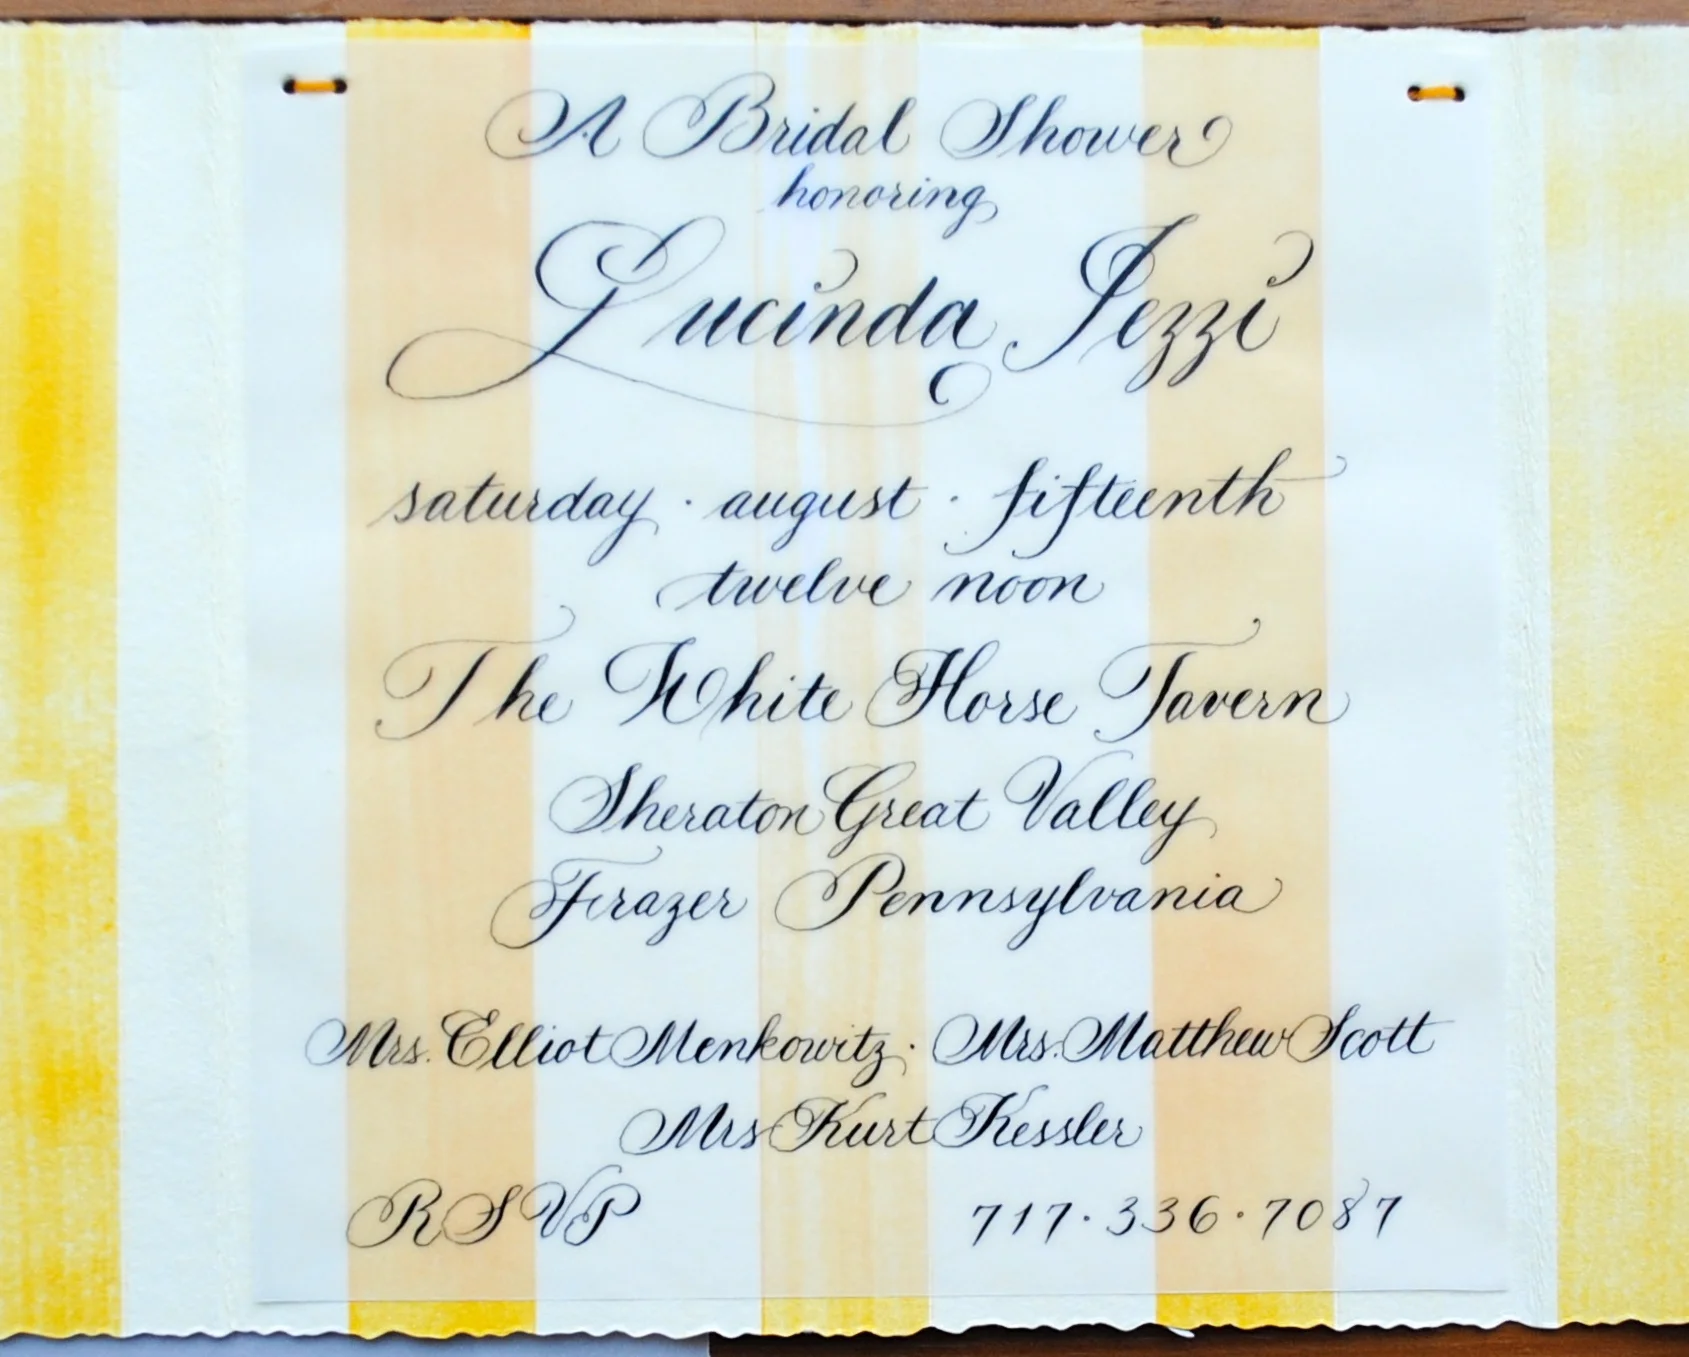 A Bridal Shower
honoring
Lucinda Iezzi
saturday · august · fifteenth
twelve noon
The White Horse Tavern
Sheraton Great Valley
Frazer Pennsylvania
Mrs. Elliot Menkowitz · Mrs. Matthew Scott
Mrs Kurt Kessler
RSVP 717·336·7087